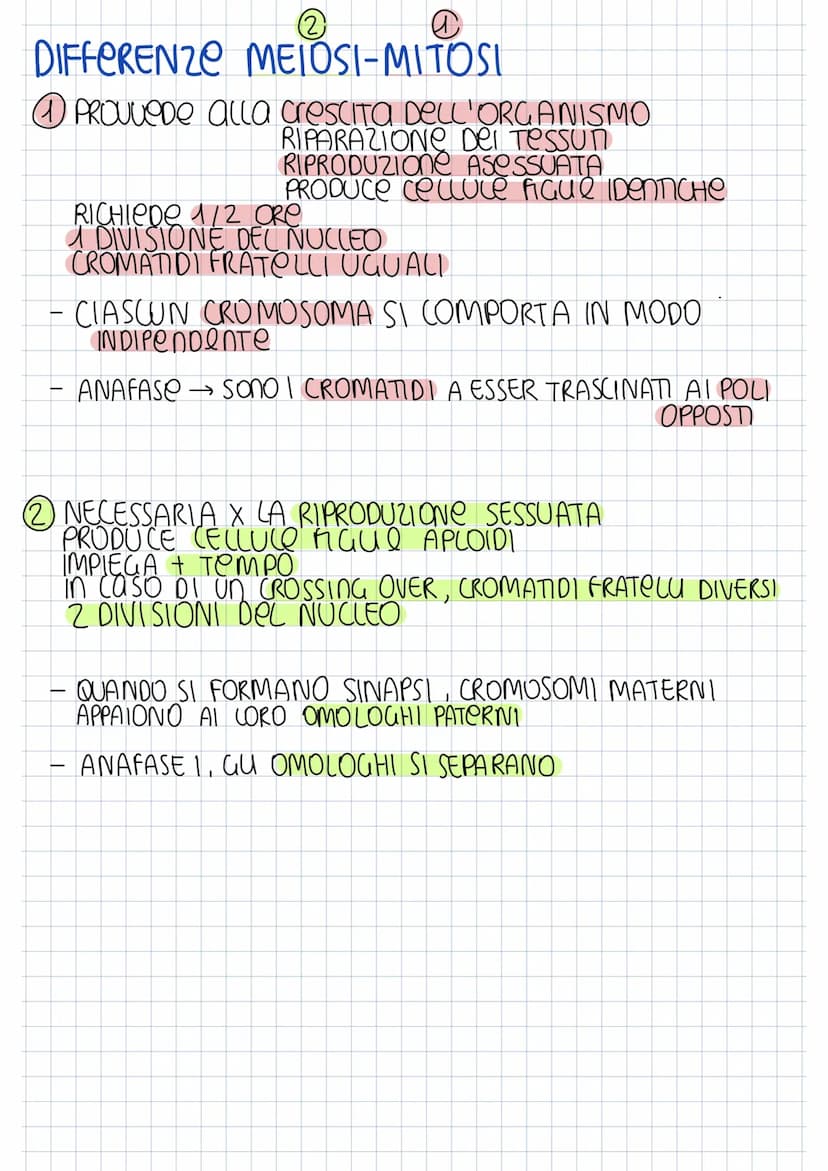 ② ①
DIFFERENZE MEIOSI-MITOSI
① PROVVEDE ALLA CRESCITA DELL'ORGANISMO
RIPARAZIONE DEI TESSUTI
RIPRODUZIONE ASESSUATA
PRODUCE CELLULE FIGLIE IDENTICHE
RICHIEDE 1/2 ORE
1 DIVISIONE DEL NUCLEO
CROMATIDI FRATELLI UGUALI
- CIASCUN CROMOSOMA SI COMPORTA IN MODO
INDIPENDENTE
- ANAFASE → SONO I CROMATIDI A ESSER TRASCINATI AI POLI
OPPOSTI
② NECESSARIA X LA RIPRODUZIONE SESSUATA
PRODUCE CELLULE FIGLIE APLOIDI
IMPIEGA + TEMPO
IN CASO DI UN CROSSING OVER, CROMATIDI FRATELLI DIVERSI
2 DIVISIONI DEL NUCLEO
- QUANDO SI FORMANO SINAPSI, CROMOSOMI MATERNI
APPAIONO AI LORO OMOLOGHI PATERNI
- ANAFASE I, GLI OMOLOGHI SI SEPARANO